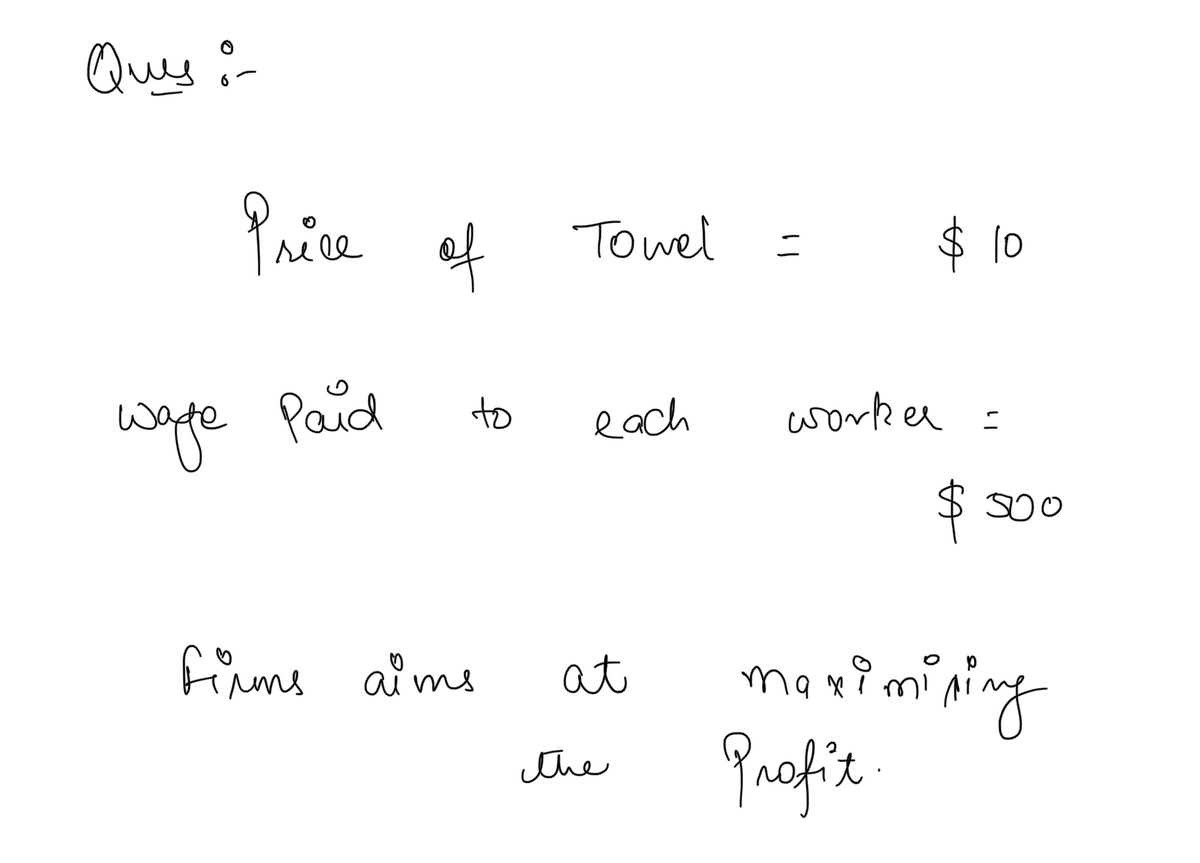 Ques :-
Price of Towel = $ 10
wage Paid to each worker =
$ 500
firms aims at maximizing
the Profit.